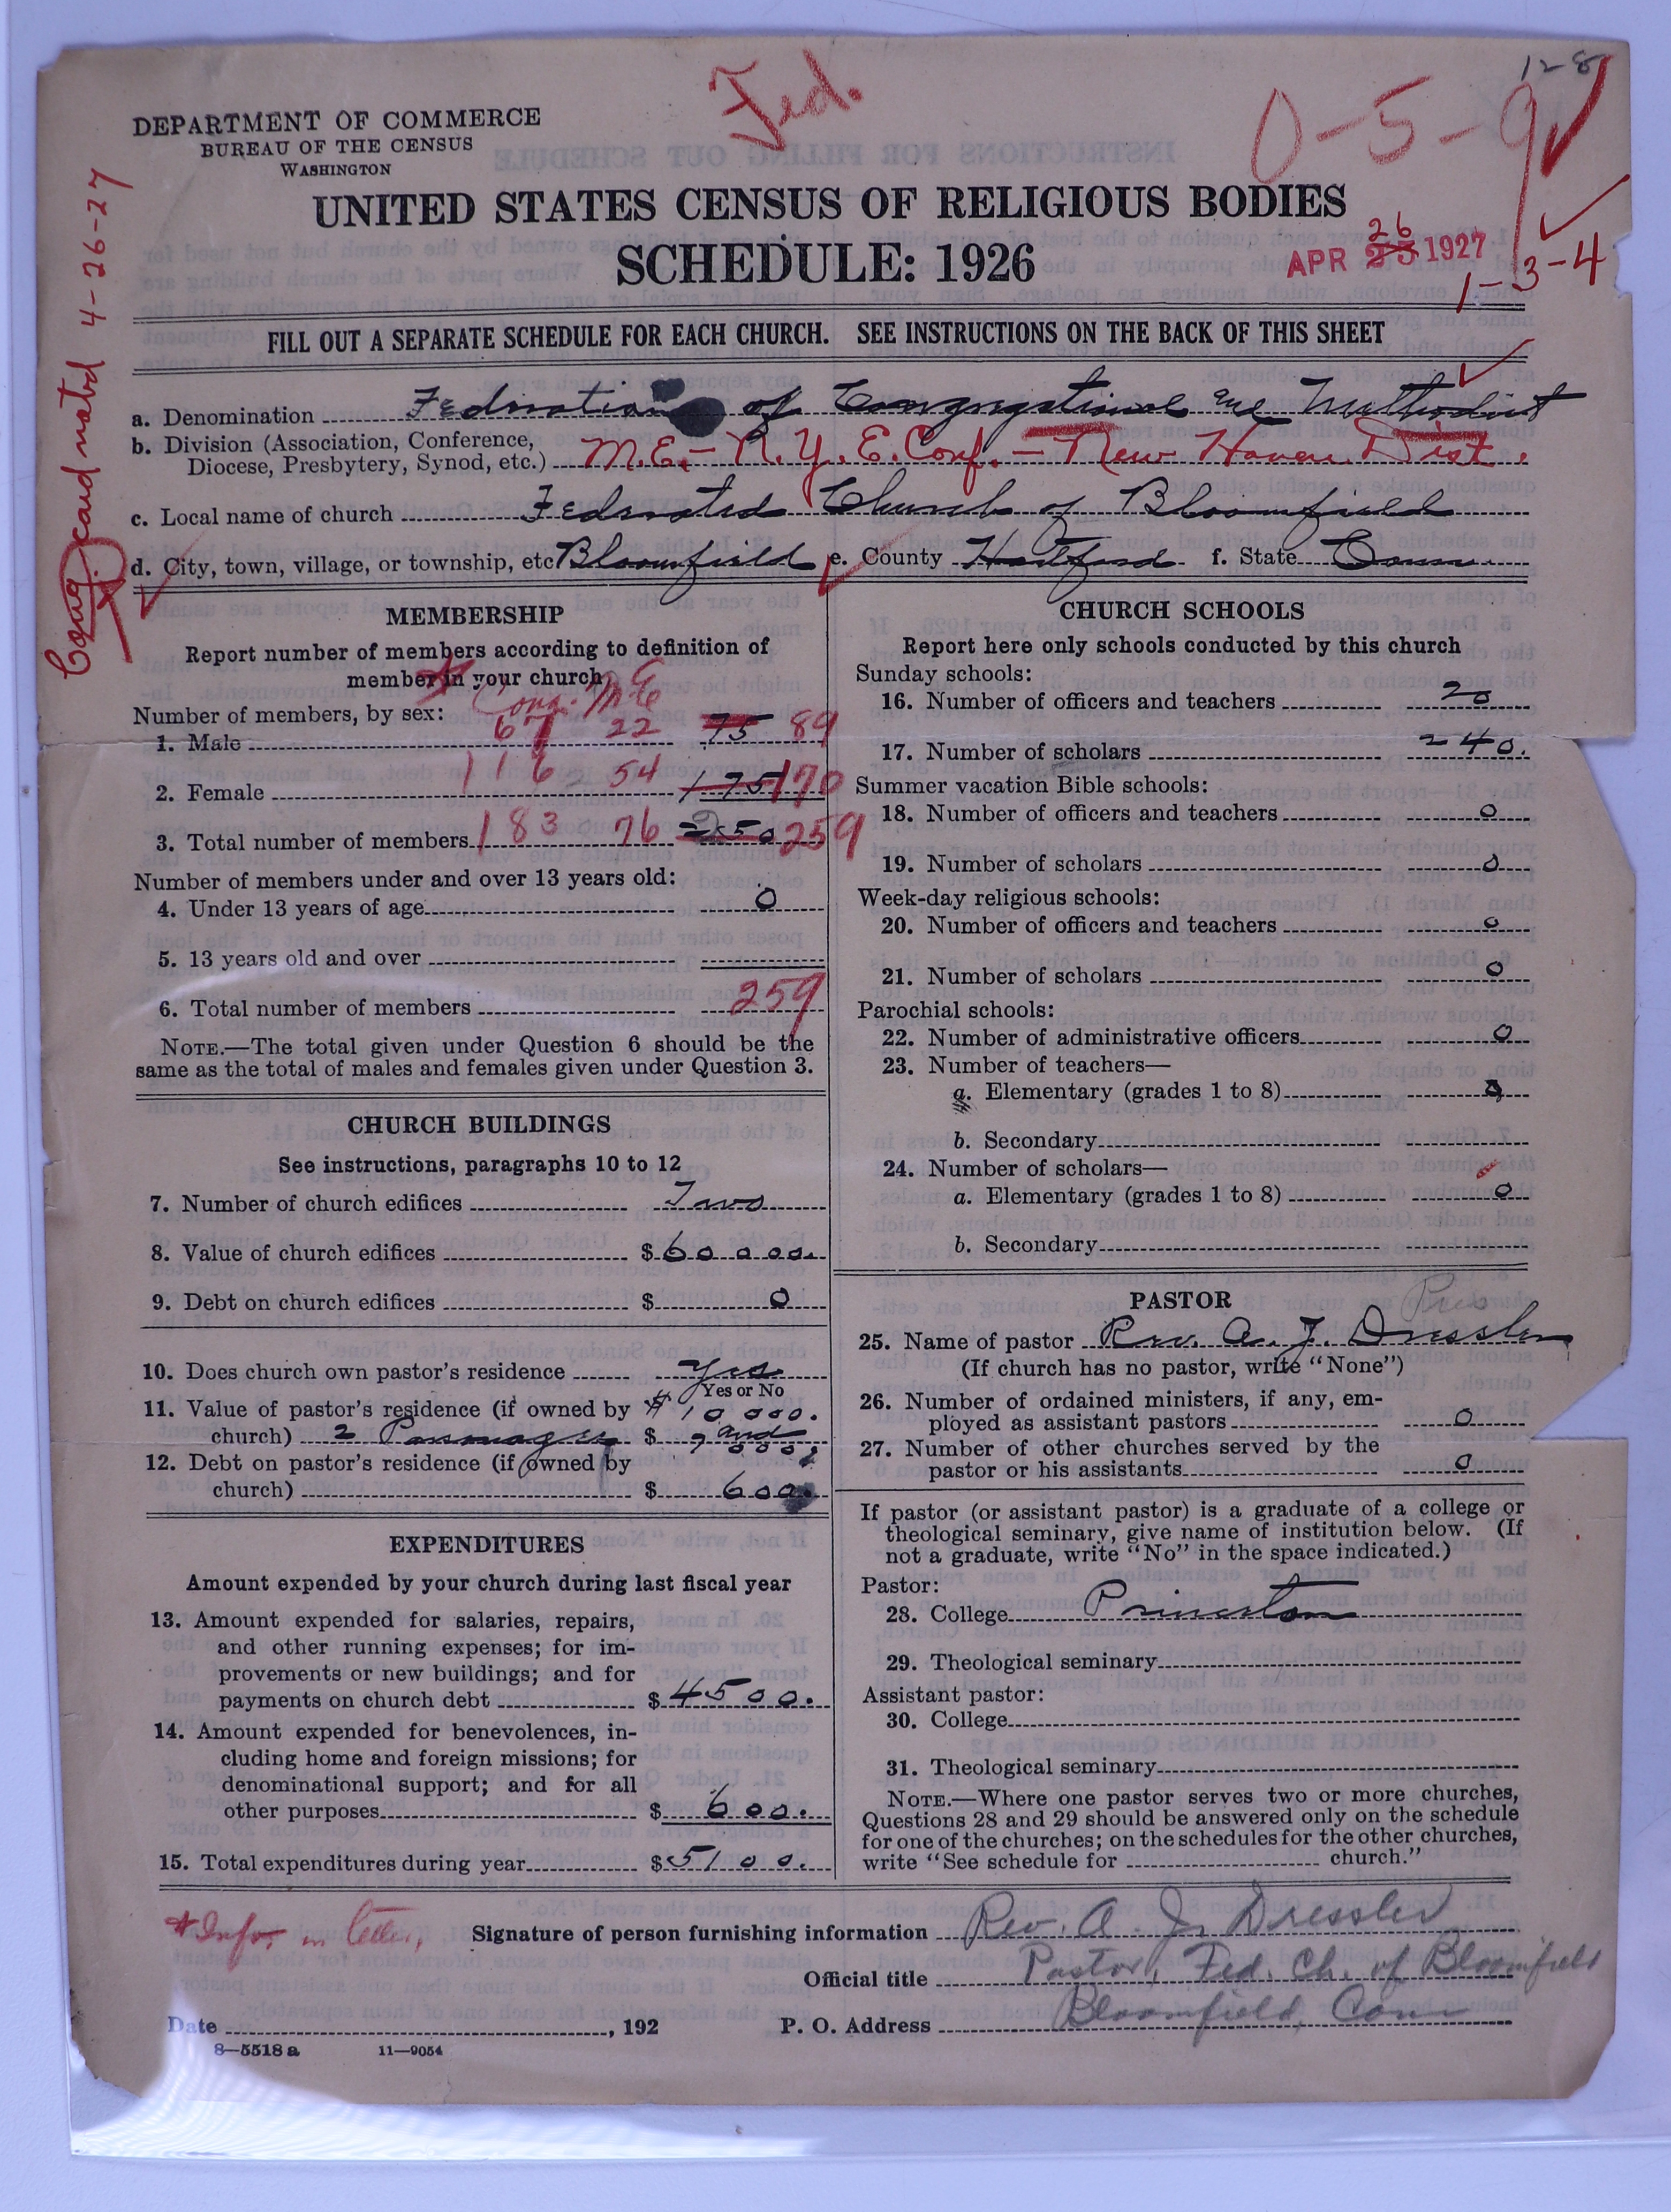 128
Fed.
0-5-9
DEPARTMENT OF COMMERCE
BUREAU OF THE CENSUS
WASHINGTON
UNITED STATES CENSUS OF RELIGIOUS BODIES
SCHEDULE: 1926
26
APR 25 1927
1-3-4
Cong. card noted 4-26-27
FILL OUT A SEPARATE SCHEDULE FOR EACH CHURCH. SEE INSTRUCTIONS ON THE BACK OF THIS SHEET
a. Denomination Federation of Congregational and Methodist
b. Division (Association, Conference,
Diocese, Presbytery, Synod, etc.) M.E. - N.Y.E. Conf. - New Haven Dist.
c. Local name of church Federated Church of Bloomfield
d. City, town, village, or township, etc Bloomfield e. County Hartford f. State Conn.
MEMBERSHIP
Report number of members according to definition of
member in your church
Cong. M.E
Number of members, by sex:
1. Male 67 22 75 89
2. Female 116 54 175 170
3. Total number of members 183 76 250 259
Number of members under and over 13 years old:
4. Under 13 years of age 0
5. 13 years old and over
6. Total number of members 259
NOTE.—The total given under Question 6 should be the
same as the total of males and females given under Question 3.
CHURCH BUILDINGS
See instructions, paragraphs 10 to 12
7. Number of church edifices Two
8. Value of church edifices $ 60 000.
9. Debt on church edifices $ 0
10. Does church own pastor's residence yes
Yes or No
11. Value of pastor's residence (if owned by $ 10 000.
church) 2 Parsonages $ and 7 000.
12. Debt on pastor's residence (if owned by
church) $ 600.
EXPENDITURES
Amount expended by your church during last fiscal year
13. Amount expended for salaries, repairs,
and other running expenses; for im-
provements or new buildings; and for
payments on church debt $ 4500.
14. Amount expended for benevolences, in-
cluding home and foreign missions; for
denominational support; and for all
other purposes $ 600.
15. Total expenditures during year $ 5100.
CHURCH SCHOOLS
Report here only schools conducted by this church
Sunday schools:
16. Number of officers and teachers 20
17. Number of scholars 240.
Summer vacation Bible schools:
18. Number of officers and teachers 0
19. Number of scholars 0
Week-day religious schools:
20. Number of officers and teachers 0
21. Number of scholars 0
Parochial schools:
22. Number of administrative officers 0
23. Number of teachers—
a. Elementary (grades 1 to 8) 0
b. Secondary
24. Number of scholars—
a. Elementary (grades 1 to 8) 0
b. Secondary
PASTOR
25. Name of pastor Rev. A. J. Dressler
(If church has no pastor, write "None")
26. Number of ordained ministers, if any, em-
ployed as assistant pastors 0
27. Number of other churches served by the
pastor or his assistants 0
If pastor (or assistant pastor) is a graduate of a college or
theological seminary, give name of institution below. (If
not a graduate, write "No" in the space indicated.)
Pastor:
28. College Princeton
29. Theological seminary
Assistant pastor:
30. College
31. Theological seminary
NOTE.—Where one pastor serves two or more churches,
Questions 28 and 29 should be answered only on the schedule
for one of the churches; on the schedules for the other churches,
write "See schedule for church."
*Infor in letter,
Signature of person furnishing information Rev. A. J. Dressler
Official title Pastor, Fed. Ch. of Bloomfield
Date , 192
P. O. Address Bloomfield, Conn
8—5518 a 11—9054